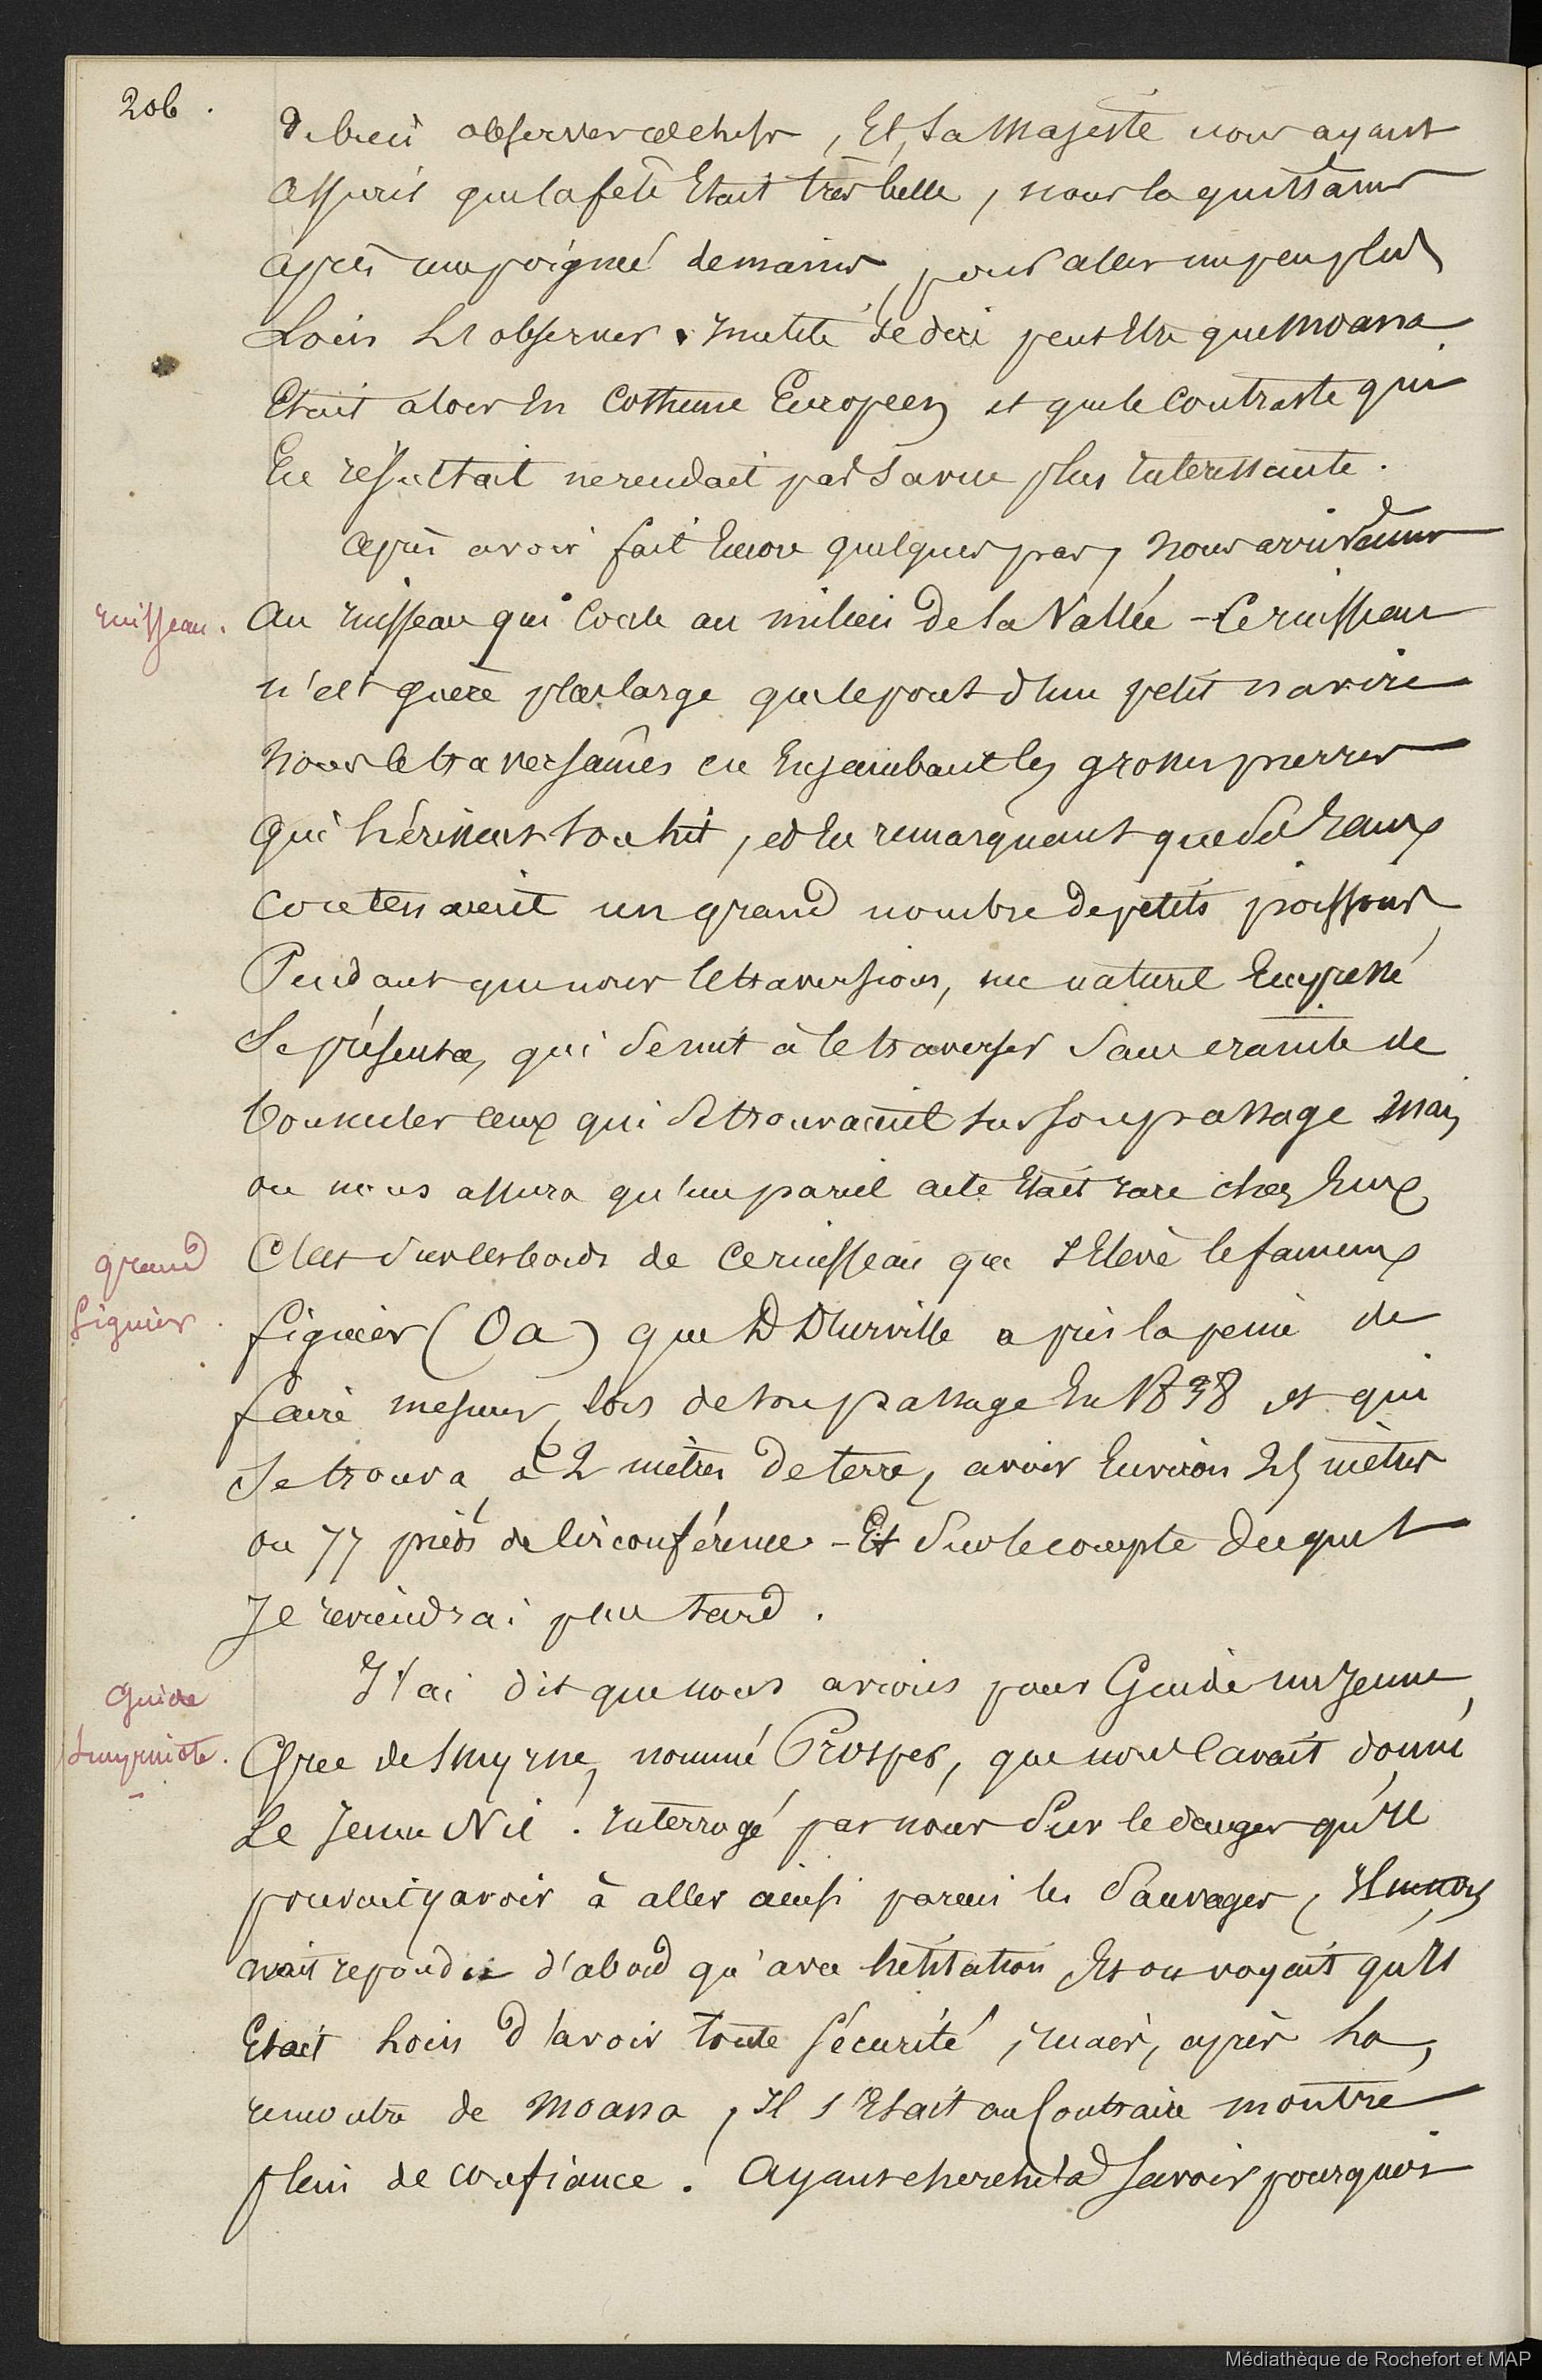 206.
de bien observer ce chef, Et, Sa Majesté nous ayant
assuré que la fête Etait très belle, nous la quittâmes
après une poignée de mains, pour aller un peu plus
Loin Et observer. Inutile de dire peut Etre que Moana
Etait alors En Costhume Européen et que le Contraste qui
En résultait ne rendait pas Sa vue plus intéressante.
après avoir fait Encore quelques pas, nous arrivâmes
ruisseau.
au ruisseau qui Coule au milieu de la Vallée - Ce ruisseau
n'est guère plus large que le pont d'un petit navire
Nous le traversâmes en Enjambant les grosses pierres
qui hérissent son lit, et En remarquant que Ses Eaux
contenaient un grand nombre de petits poissons,
Pendant que nous le traversions, un naturel Empressé
Se présenta, qui Se mit à le traverser Sans crainte de
bousculer ceux qui Se trouvaient Sur Son passage mais
on nous assura qu'un pareil acte Etait rare chez Eux,
grand
figuier.
C'est Sur les bords de Ce ruisseau que s'Elève le fameux
figuier (Oa) que D D'urville a pris la peine de
faire mesurer, lors de Son passage En 1838 et qui
Se trouva, à 2 mètres de terre, avoir Environ 25 mètres
ou 77 pieds de Circonférence - Et Sur le compte duquel
Je reviendrai plus tard.
Guide
Smyrniote.
J'ai dit que nous avions pour Guide un Jeune
Grec de Smyrne, nommé Prosper, que nous l'avait donné
Le Jeune Nié. Interrogé par nous Sur le danger qu'Il
pouvait y avoir à aller ainsi parmi les Sauvages, Il
avait répondu d'abord qu'avec hésitation Et on voyait qu'Il
Etait Loin d'avoir toute Sécurité, mais, après La
rencontre de Moana, Il s'Etait au Contraire montré
plein de confiance. Ayant cherché à Savoir pourquoi
Médiathèque de Rochefort et MAP